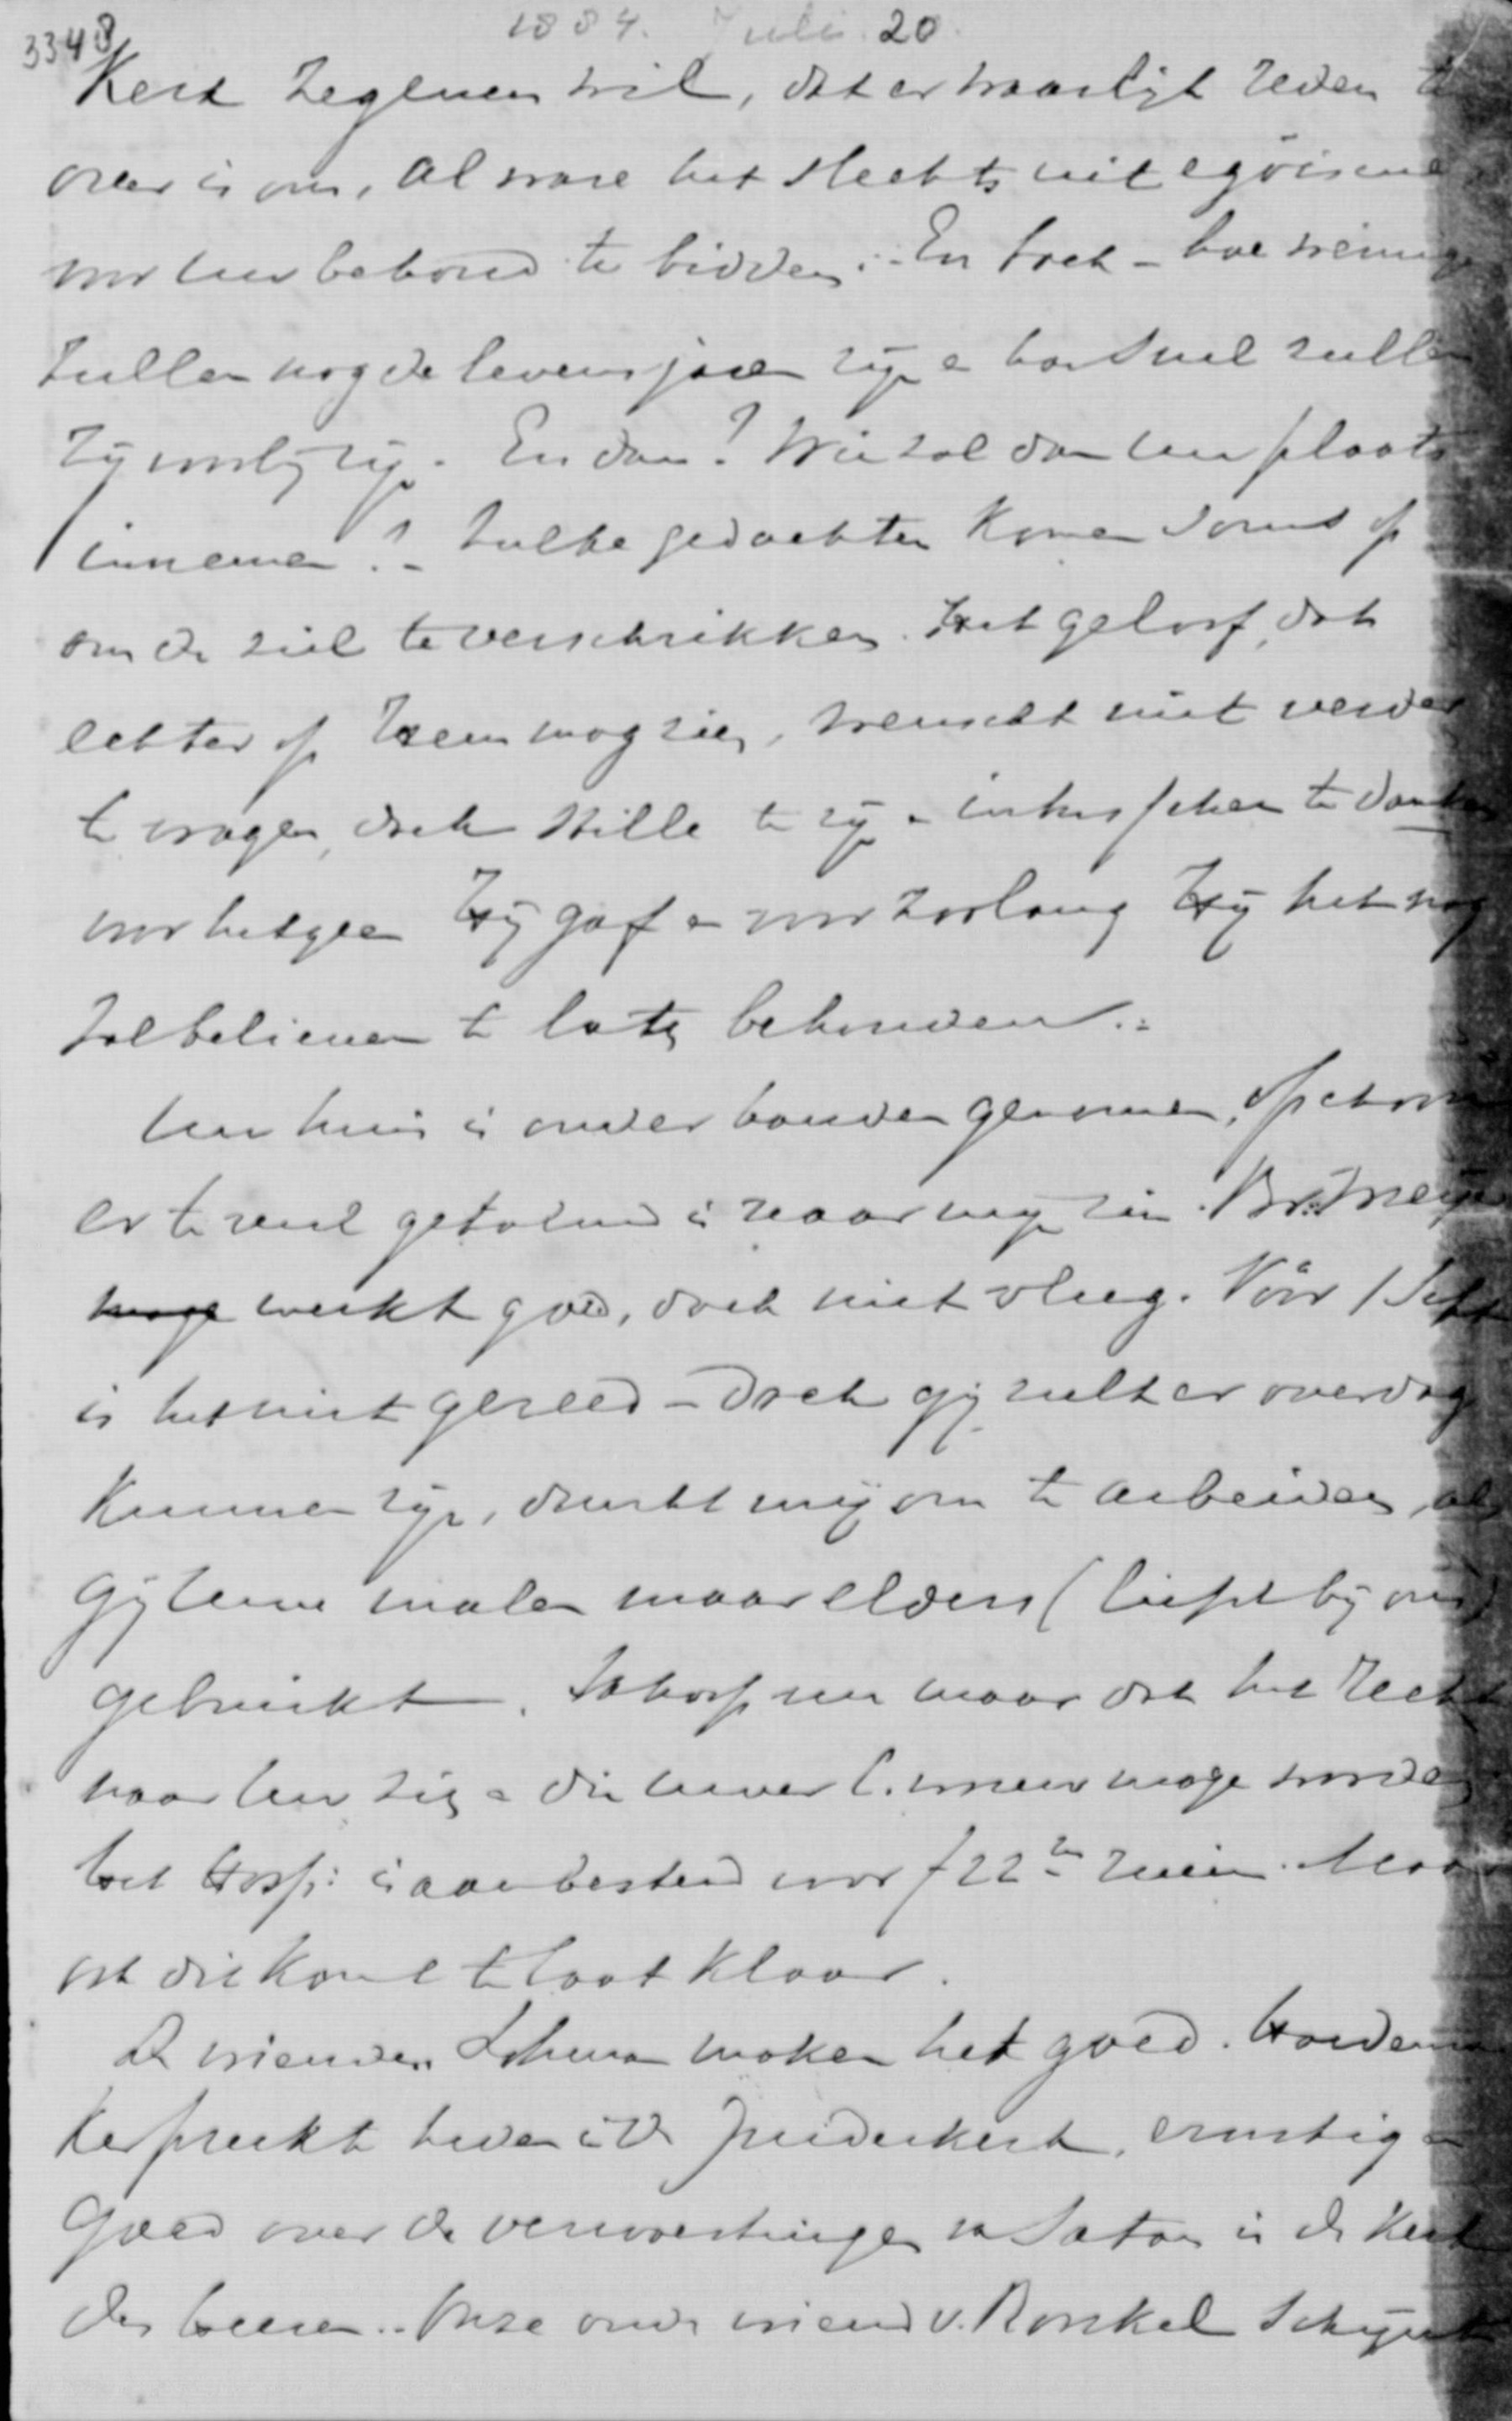 3348
1884. Juli 20.
Kerk zegenen wil, dat er waarlijk reden te
over is om, al ware het slechts uit egoisme
voor uw behoud te bidden. - En toch - hoe weinige
zullen nog de levensjaren zijn en hoe snel zullen
zij voorbij zijn. En dan? Wie zal dan uw plaats
innemen? - Zulke gedachten komen soms op
om de ziel te verschrikken. Het geloof, dat
echter op Hem mag zien, wenscht niet verder
te vragen, doch stille te zijn en intusschen te danken
voor hetgeen Hij gaf en voor zoolang Hij het nog
zal believen te laten behouden. -
Uw huis is onder handen genomen, ofschoon
er te veel getalmd is naar mijn zin. Br.
werkt goed, doch niet vlug. Vóór 1 Sept
is het niet gereed - doch gij zult er overdag
kunnen zijn, dunkt mij om te arbeiden, als
gij uwe malen maar elders (liefst bij ons)
gebruikt. Ik hoop nu maar dat het recht
naar uw zin en die uwer l. vrouw moge worden.
Het Hosp: is aanbesteed voor f 22 m ruim. Maar
ook dit komt te laat klaar.
De vrienden Lohman maken het goed. Hoedema
ker preekte heden in de Zuiderkerk, ernstig en
goed over de verwoestingen van Satan in de Kerk
des Heeren. - Onze oude vriend v. Ronkel schijnt